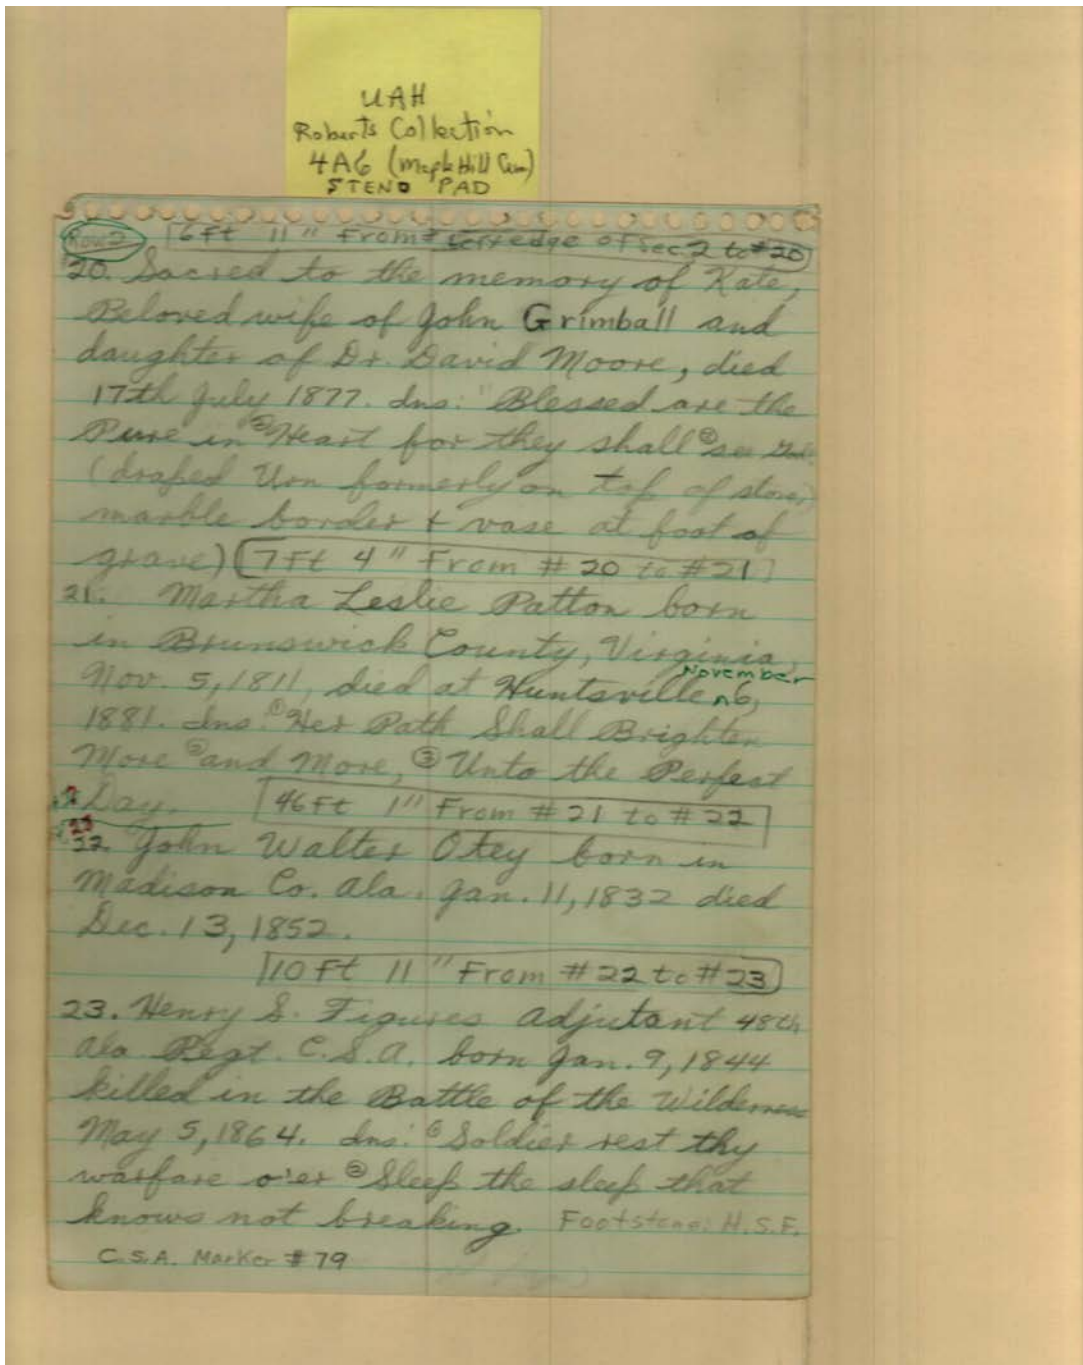 UAH
Roberts Collection
4A6 (Maple Hill Cem)
STENO PAD
Row 2 16 ft 11" From edge of Sec. 2 to #20
20. Sacred to the memory of Kate,
Beloved wife of John Grimball and
daughter of Dr. David Moore, died
17th July 1877. Ins: "Blessed are the
Pure in ② Heart for they shall ③ see God.
(draped Urn formerly on top of stone,
marble border + vase at foot of
grave) 7 Ft 4" From #20 to #21
21. Martha Leslie Patton born
in Brunswick County, Virginia,
Nov. 5, 1811, died at Huntsville ^ November 6,
1881. Ins: ① Her Path Shall Brighten
More ② and More, ③ Unto the Perfect
Day. 46 Ft 1" From #21 to #22
22. John Walter Otey born in
Madison Co. Ala. Jan. 11, 1832 died
Dec. 13, 1852.
10 Ft 11" From #22 to #23
23. Henry S. Figures Adjutant 48th
Ala Regt. C.S.A. born Jan. 9, 1844
killed in the Battle of the Wilderness
May 5, 1864. Ins: ① Soldier rest thy
warfare o'er ② Sleep the sleep that
knows not breaking. Footstone: H.S.F.
C.S.A. Marker #79